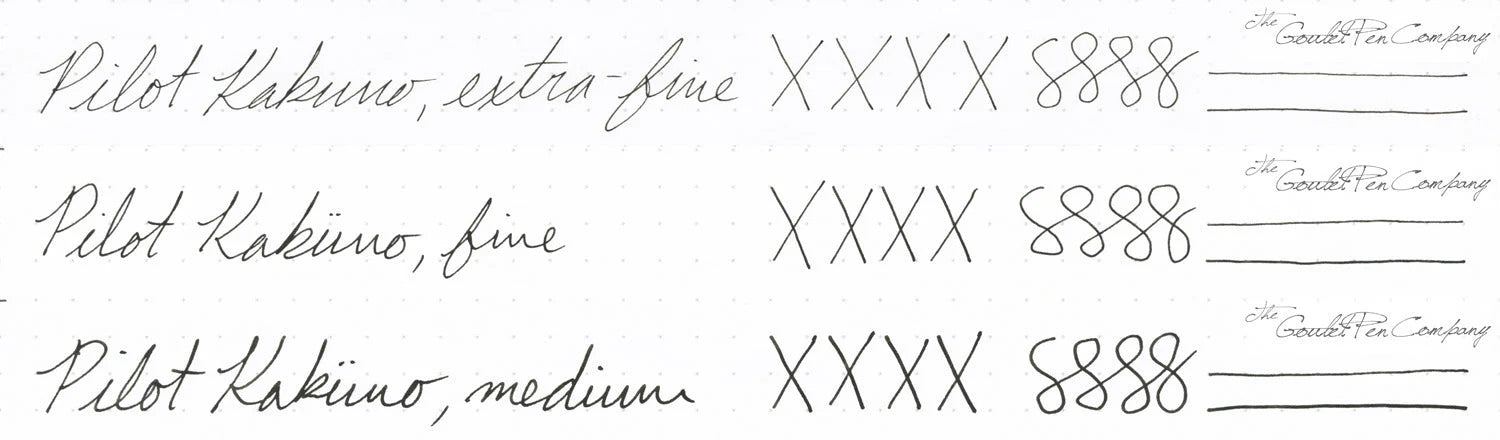 The Goulet Pen Company
Pilot Kakuno, extra-fine XXXX 8888
The Goulet Pen Company
Pilot Kaküno, fine XXXX 8888
The Goulet Pen Company
Pilot Kaküno, medium XXXX 8888